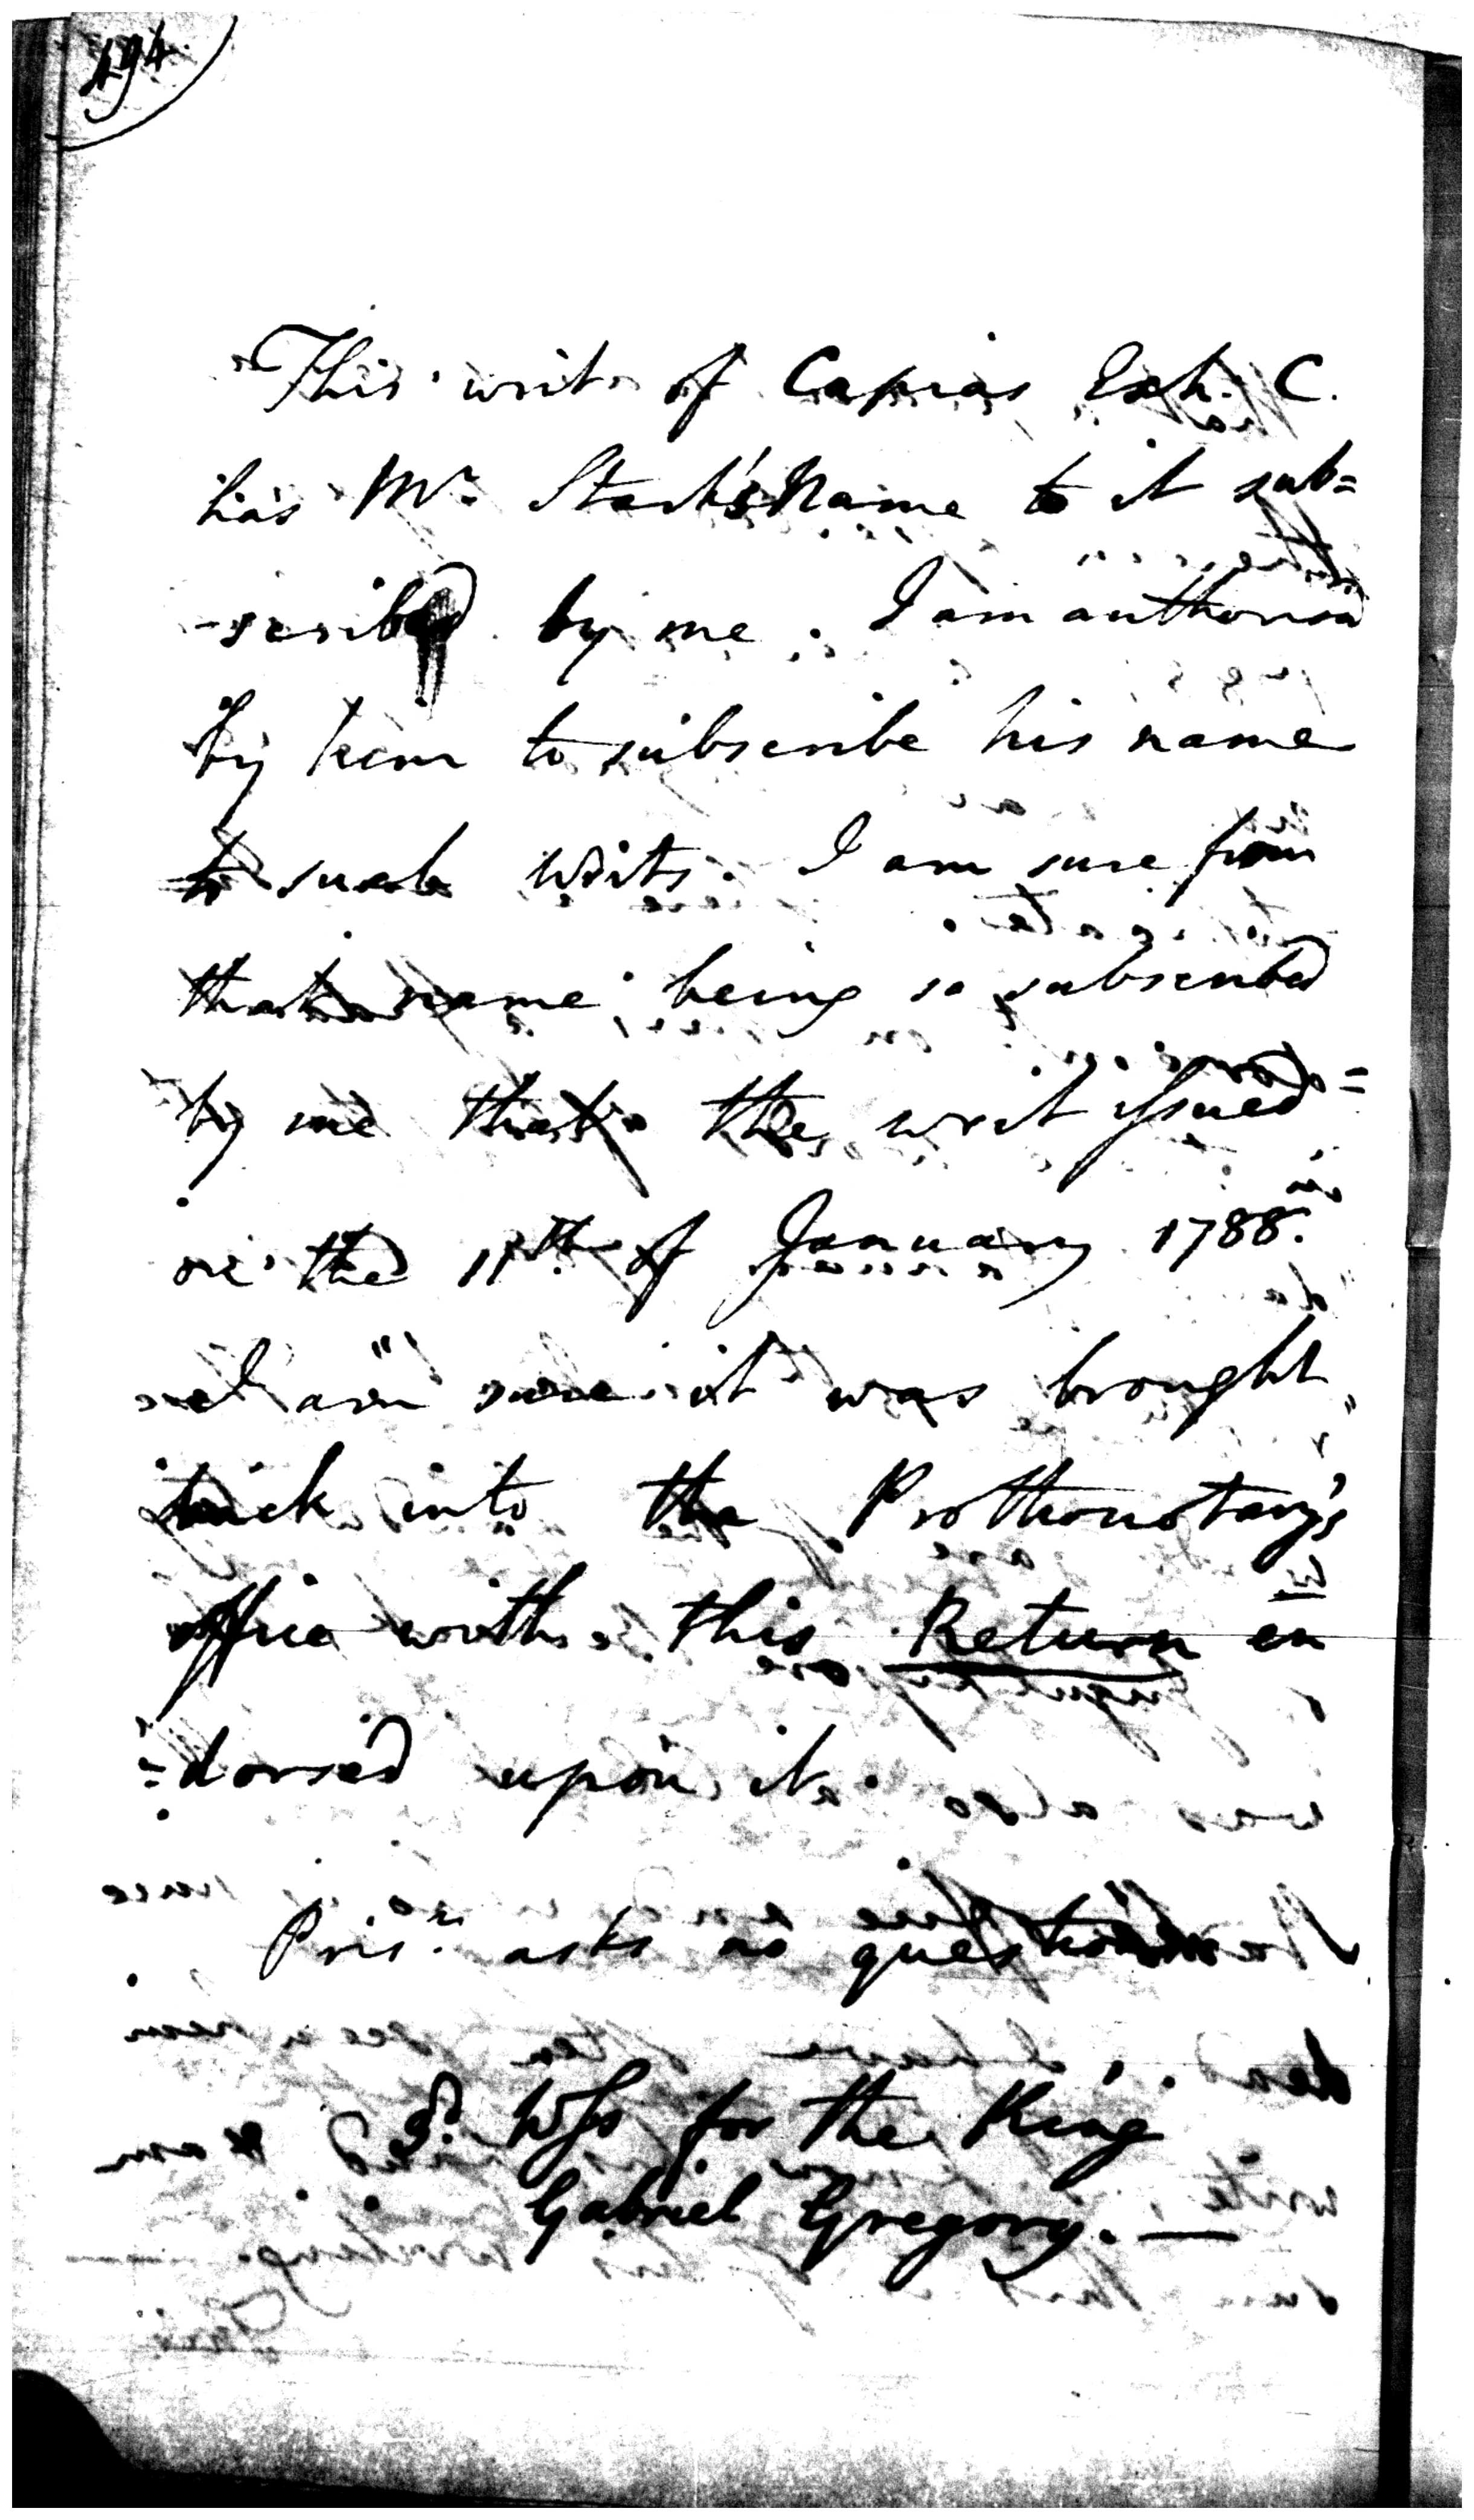 494
This writ of Capias Exh. C.
has Mr. Stark's Name to it sub=
-scribed by me. I am authorised
by him to subscribe his name
to such Writs. I am sure from
that name being so subscribed
by me that the writ issued
on the 11th. of January 1788.
I am sure it was brought
back into the Prothonotary's
office with this Return en
=dorsed upon it.
Prisr. asks no questions
Wss for the King
Gabriel Gregory. —